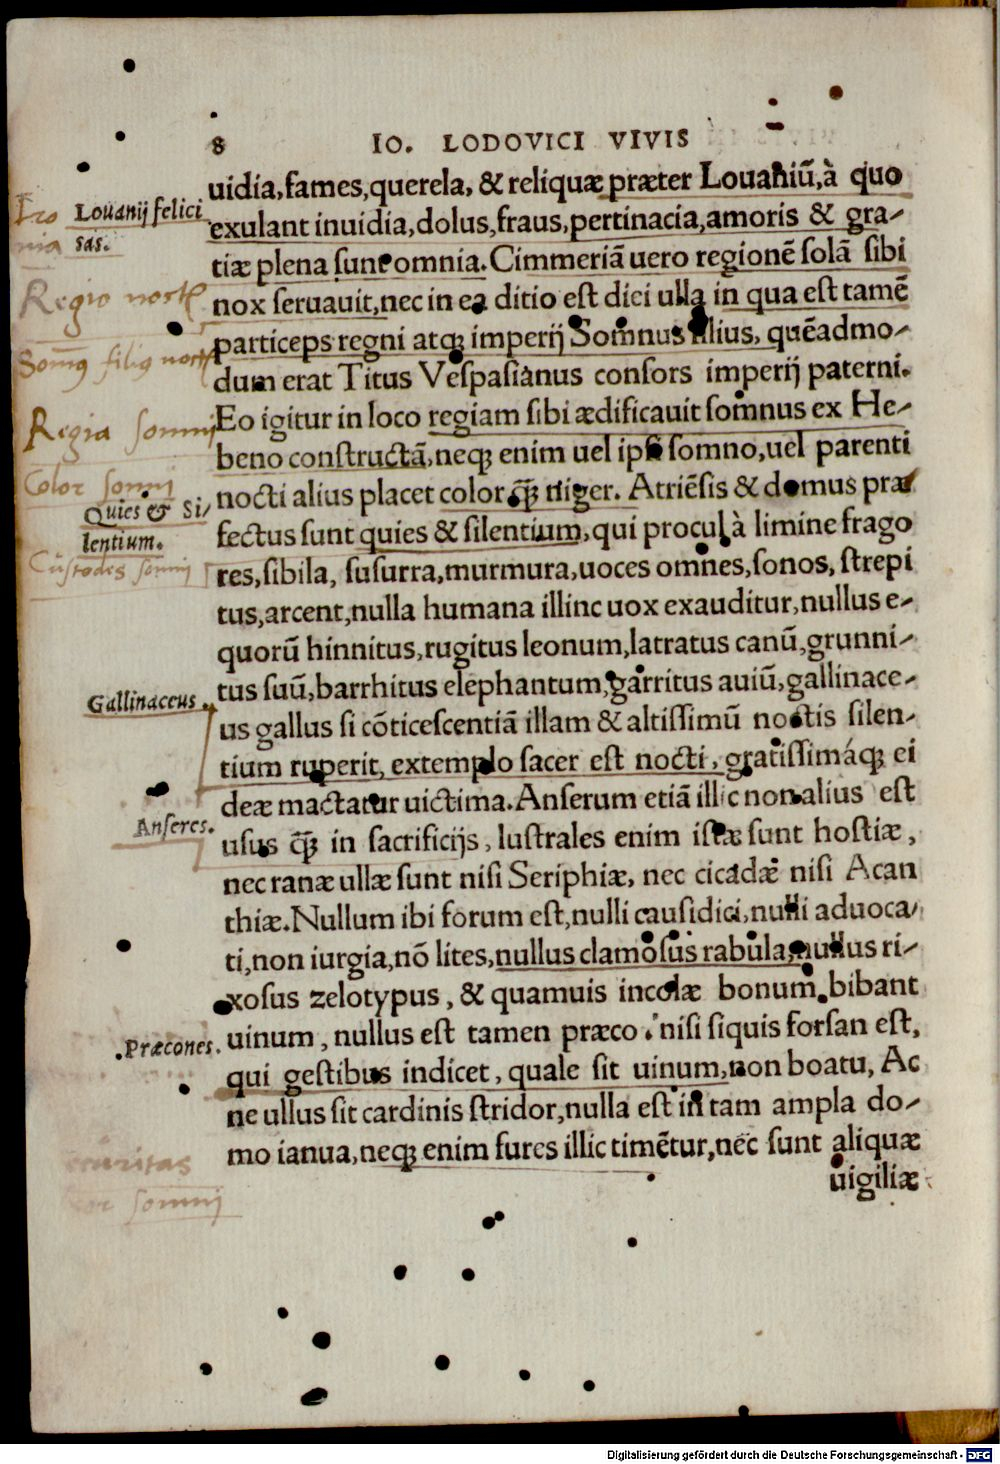 8 IO. LODOVICI VIVIS
uidia, fames, querela, & reliquæ præter Louaniũ, à quo
exulant inuidia, dolus, fraus, pertinacia, amoris & gra-
tiæ plena sunt omnia. Cimmeriã uero regionẽ solã sibi
nox seruauit, nec in ea ditio est diei ulla in qua est tamẽ
particeps regni atq; imperij Somnus filius, quẽadmo-
dum erat Titus Vespasianus consors imperij paterni.
Eo igitur in loco regiam sibi ædificauit somnus ex He-
beno constructã, neq; enim uel ipsi somno, uel parenti
nocti alius placet color q̃ niger. Atriẽsis & domus præ
fectus sunt quies & silentium, qui procul à limine frago
res, sibila, susurra, murmura, uoces omnes, sonos, strepi
tus, arcent, nulla humana illinc uox exauditur, nullus e-
quorũ hinnitus, rugitus leonum, latratus canũ, grunni-
tus suũ, barrhitus elephantum, garritus auiũ, gallinace-
us gallus si cõticescentiã illam & altissimũ noctis silen-
tium ruperit, extemplo sacer est nocti, gratissimáq; ei
deæ mactatur uictima. Anserum etiã illic non alius est
usus q̃ in sacrificijs, lustrales enim istæ sunt hostiæ,
nec ranæ ullæ sunt nisi Seriphiæ, nec cicadæ nisi Acan
thiæ. Nullum ibi forum est, nulli causidici, nulli aduoca-
ti, non iurgia, nõ lites, nullus clamosus rabula, nullus ri-
xosus zelotypus, & quamuis incolæ bonum bibant
uinum, nullus est tamen præco nisi siquis forsan est,
qui gestibus indicet, quale sit uinum, non boatu, Ac
ne ullus sit cardinis stridor, nulla est in tam ampla do-
mo ianua, neq; enim fures illic timẽtur, nec sunt aliquæ
uigiliæ
Iro
nia
Louanij felici
tas.
Regio noct
Somnus filius noctis
Regia somni
Color somni
Quies & Si-
lentium.
Custodes somni
Gallinaceus.
Anseres.
Præcones.
somni
Digitalisierung gefördert durch die Deutsche Forschungsgemeinschaft - DFG